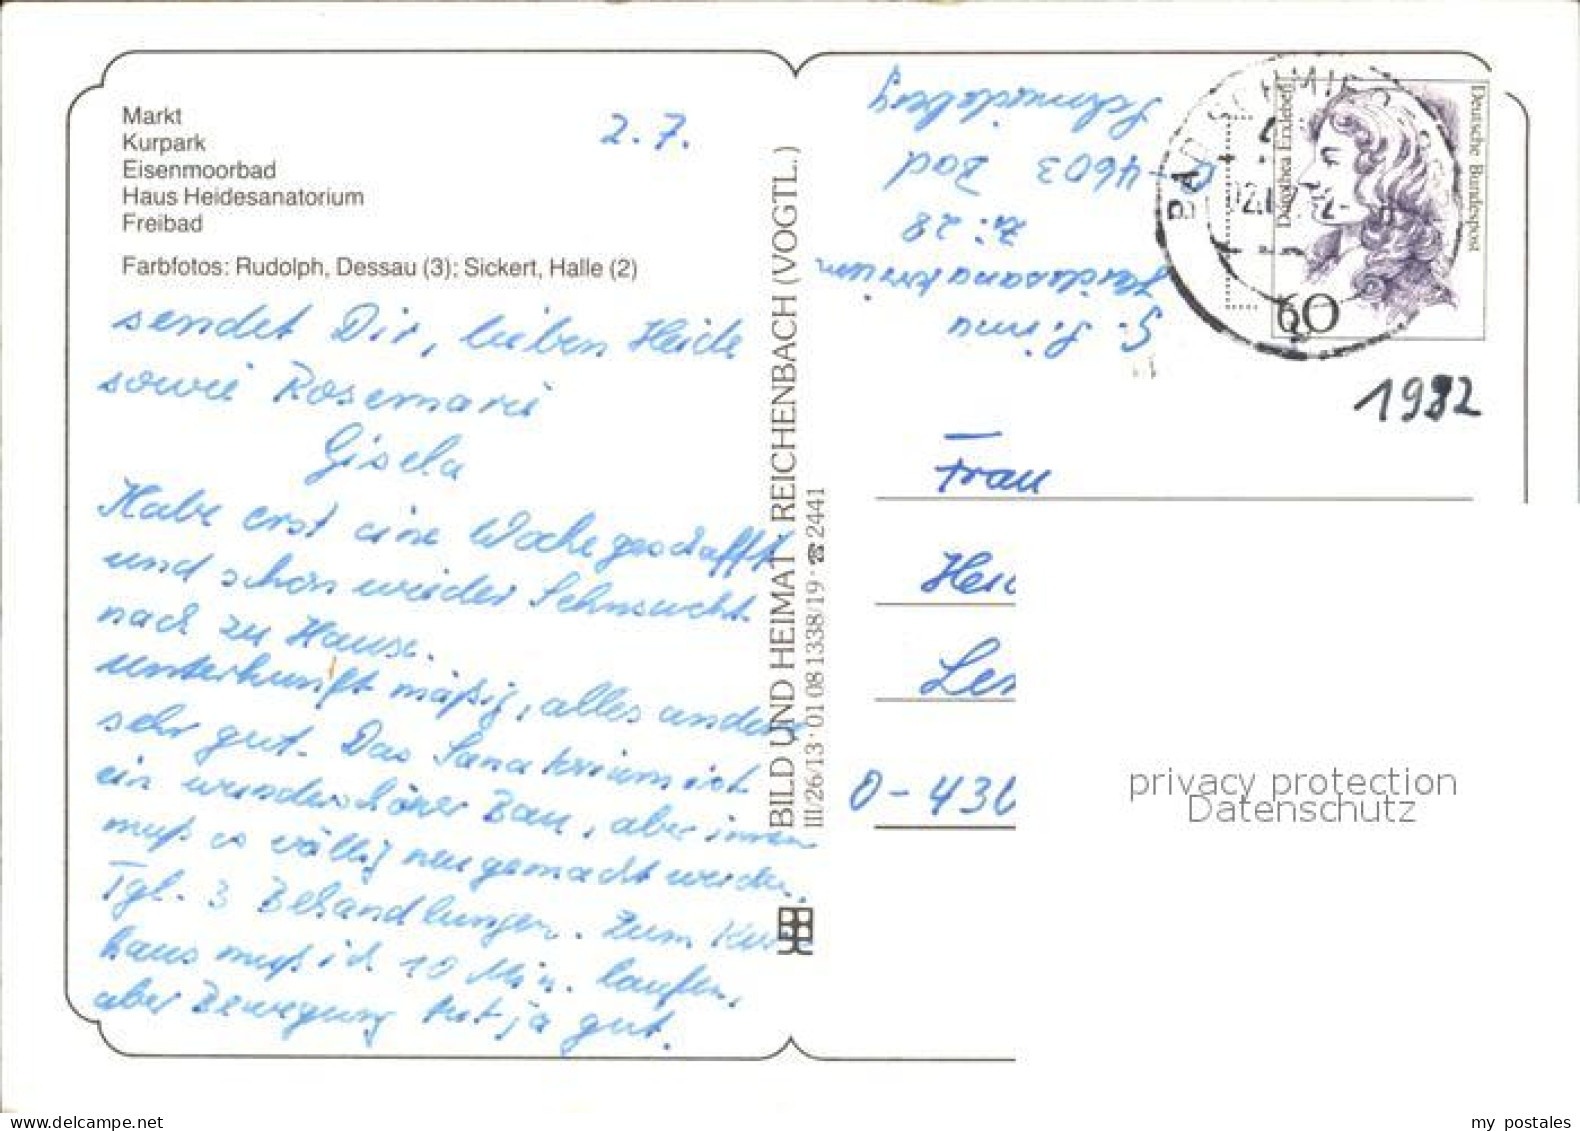 Markt
Kurpark
Eisenmoorbad
Haus Heidesanatorium
Freibad
Farbfotos: Rudolph, Dessau (3); Sickert, Halle (2)
2.7.
sendet Dir, lieben Heide
sowie Rosemarie
Gisela
Habe erst eine Woche geschafft
und schon wieder Sehnsucht
nach zu Hause.
Unterkunft mäßig, alles andere
sehr gut. Das Sanatorium ist
ein wunderschöner Bau, aber innen
muß es völlig neu gemacht werden.
Tgl. 3 Behandlungen. Zum Kur-
haus muß ich 10 Min. laufen,
aber Bewegung tut ja gut.
BILD UND HEIMAT REICHENBACH (VOGTL.)
III/26/13 · 01 08 1338/19 · ☎ 2441
G.
Heidesanatorium
Zi. 28
4603 Bad
Schmiedeberg
BAD SCHMIEDEBERG
Dorothea Erxleben
Deutsche Bundespost
60
1992
Frau
Heid
Len
O-430
privacy protection
Datenschutz
my postales